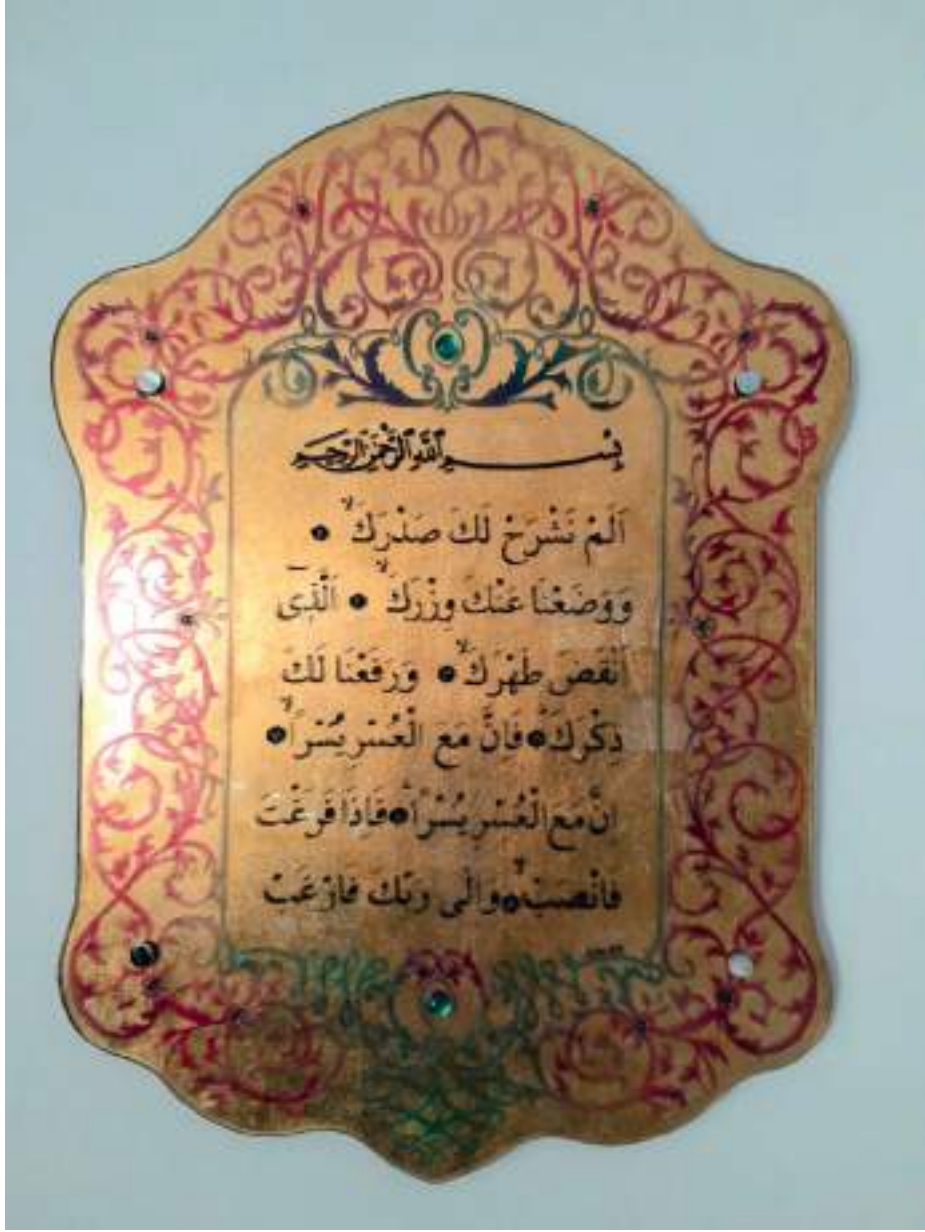 بِسْمِ اللّٰهِ الرَّحْمٰنِ الرَّحِيمِ
اَلَمْ نَشْرَحْ لَكَ صَدْرَكَۙ
وَوَضَعْنَا عَنْكَ وِزْرَكَۙ اَلَّذٓى
اَنْقَضَ ظَهْرَكَۙ وَرَفَعْنَا لَكَ
ذِكْرَكَ فَاِنَّ مَعَ الْعُسْرِ يُسْرًاۙ
اِنَّ مَعَ الْعُسْرِ يُسْرًا فَاِذَا فَرَغْتَ
فَانْصَبْۙ وَاِلٰى رَبِّكَ فَارْغَبْ